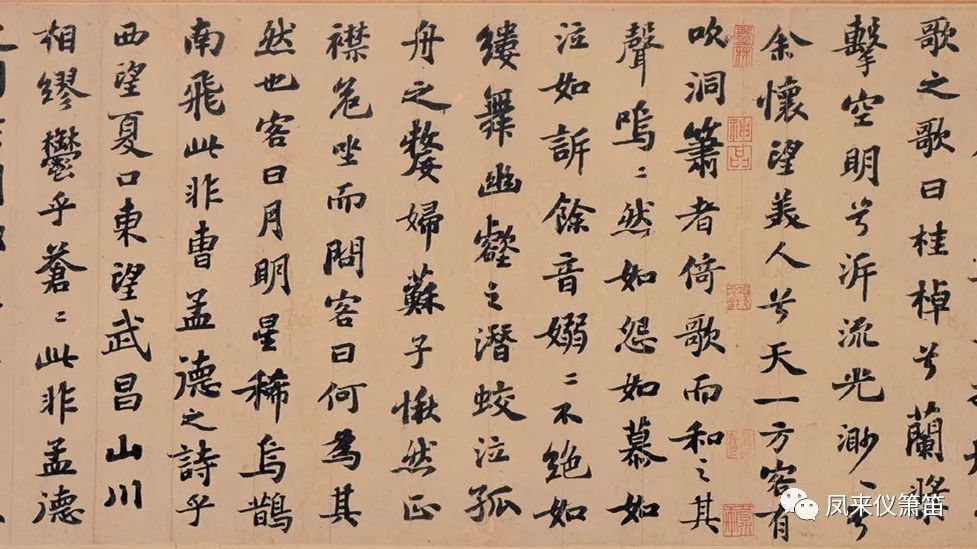 歌之歌曰桂棹兮蘭槳
擊空明兮泝流光渺〻兮
余懷望美人兮天一方客有
吹洞簫者倚歌而和之其
聲嗚〻然如怨如慕如
泣如訴餘音嫋〻不絕如
縷舞幽壑之潛蛟泣孤
舟之嫠婦蘇子愀然正
襟危坐而問客曰何為其
然也客曰月明星稀烏鵲
南飛此非曹孟德之詩乎
西望夏口東望武昌山川
相繆鬱乎蒼〻此非孟德
神品
凤来仪箫笛